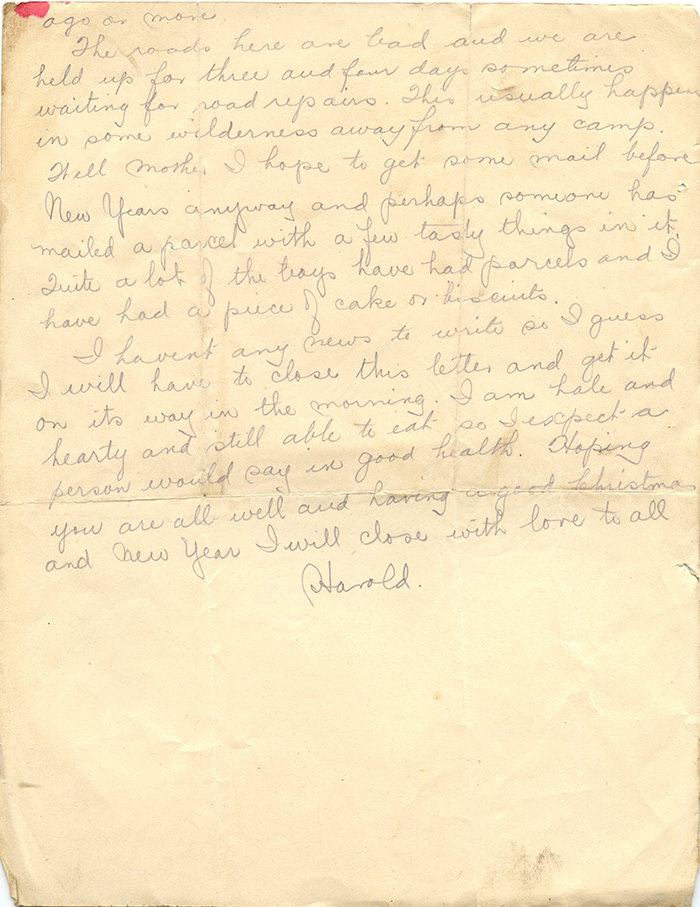 ago or more.
The roads here are bad and we are
held up for three and four days sometimes
waiting for road repairs. This usually happens
in some wilderness away from any camp.
Well Mother I hope to get some mail before
New Years anyway and perhaps someone has
mailed a parcel with a few tasty things in it.
Quite a lot of the boys have had parcels and I
have had a piece of cake or biscuits.
I havent any news to write so I guess
I will have to close this letter and get it
on its way in the morning. I am hale and
hearty and still able to eat so I expect a
person would say in good health. Hoping
you are all well and having a good Christmas
and New Year I will close with love to all
Harold.